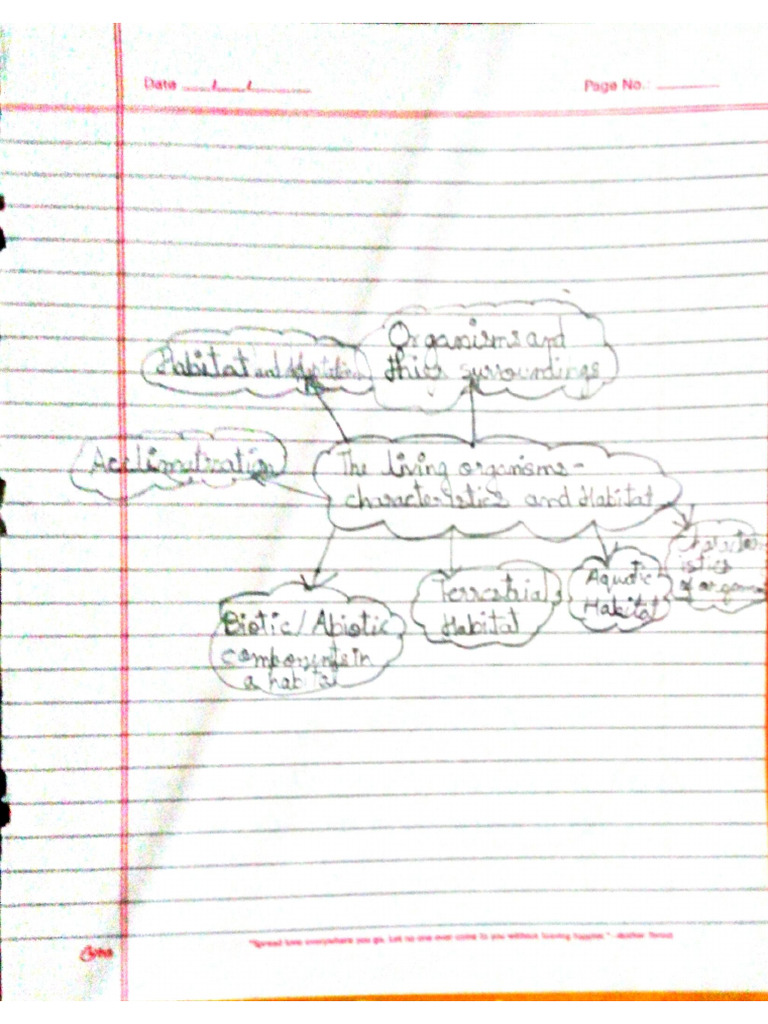 Date
Page No.:
Organisms and
thier surroundings
Habitat and Adaptation
Acclimatization
The living organisms-
characteristics and Habitat
Characteristics
Aquatic
Habitat
Terrestrial
Habitat
Biotic/Abiotic
components in
a habitat
"Spread love everywhere you go. Let no one ever come to you without leaving happier." -Mother Teresa